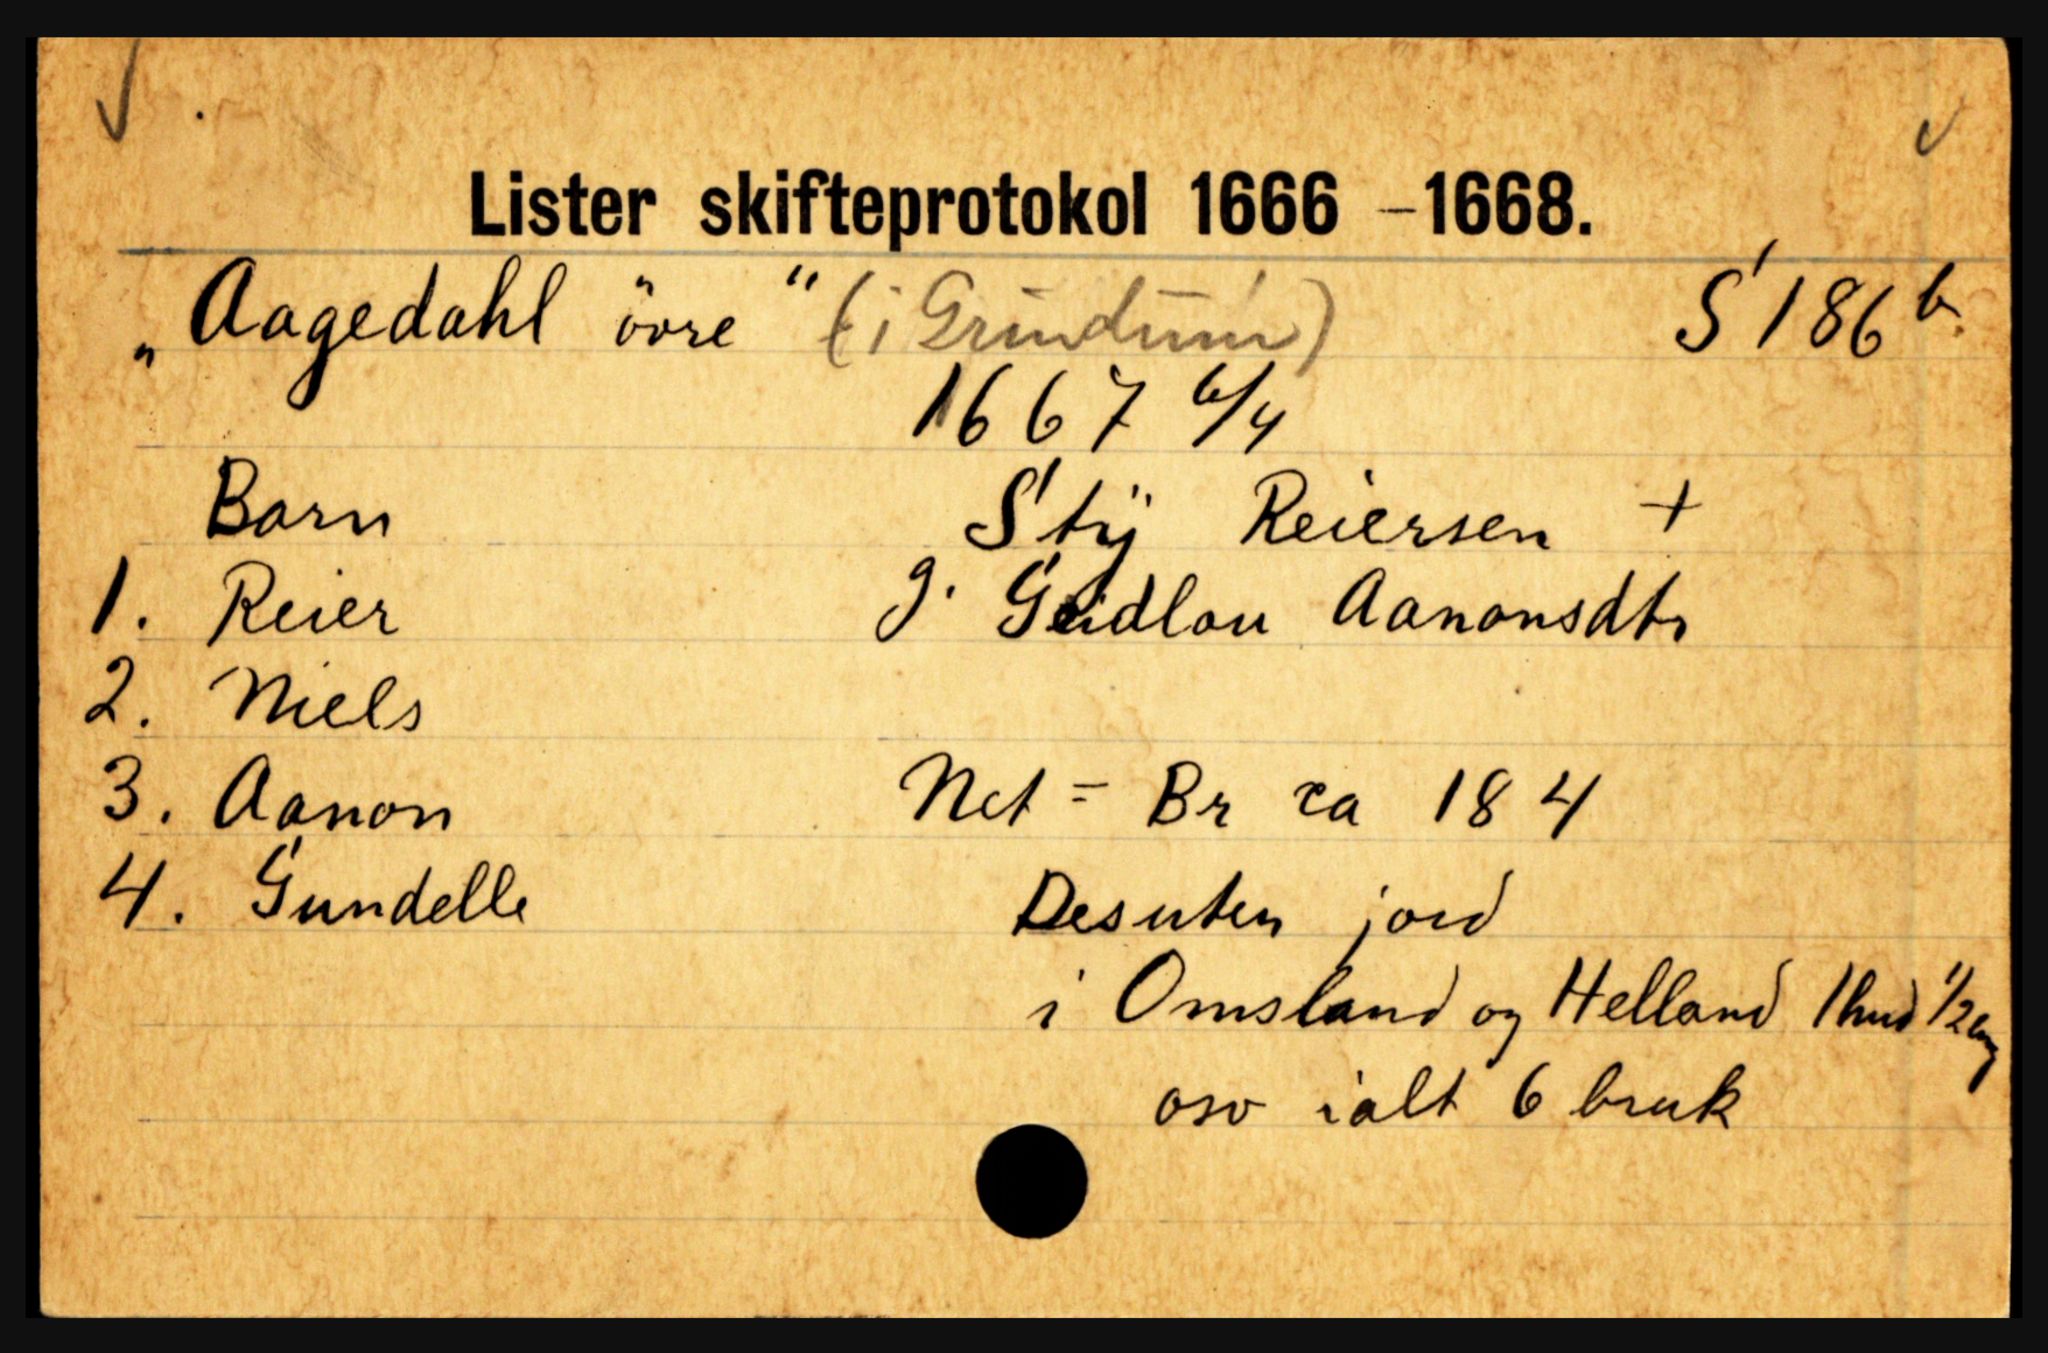 Lister skifteprotokol 1666 – 1668.
„Aagedahl övre“ (i Grindum) S 186 b.
1667 6/4
Barn Stij Reiersen +
1. Reier g. Gudlau Aanonsdtr
2. Niels
3. Aanon Net = Br ca 184
4. Gundelle Desuten jord
i Omsland og Helland 1 hud 1/2 eng
osv ialt 6 bruk